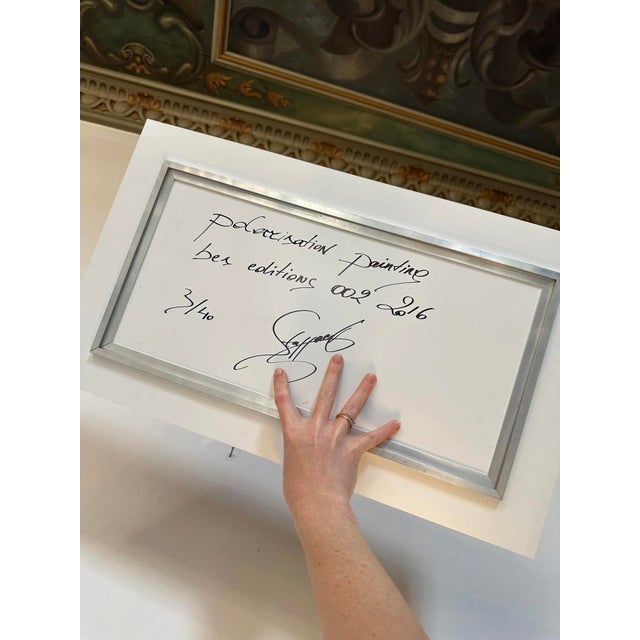 polarisation painting
ber editions 002 2016
3/40